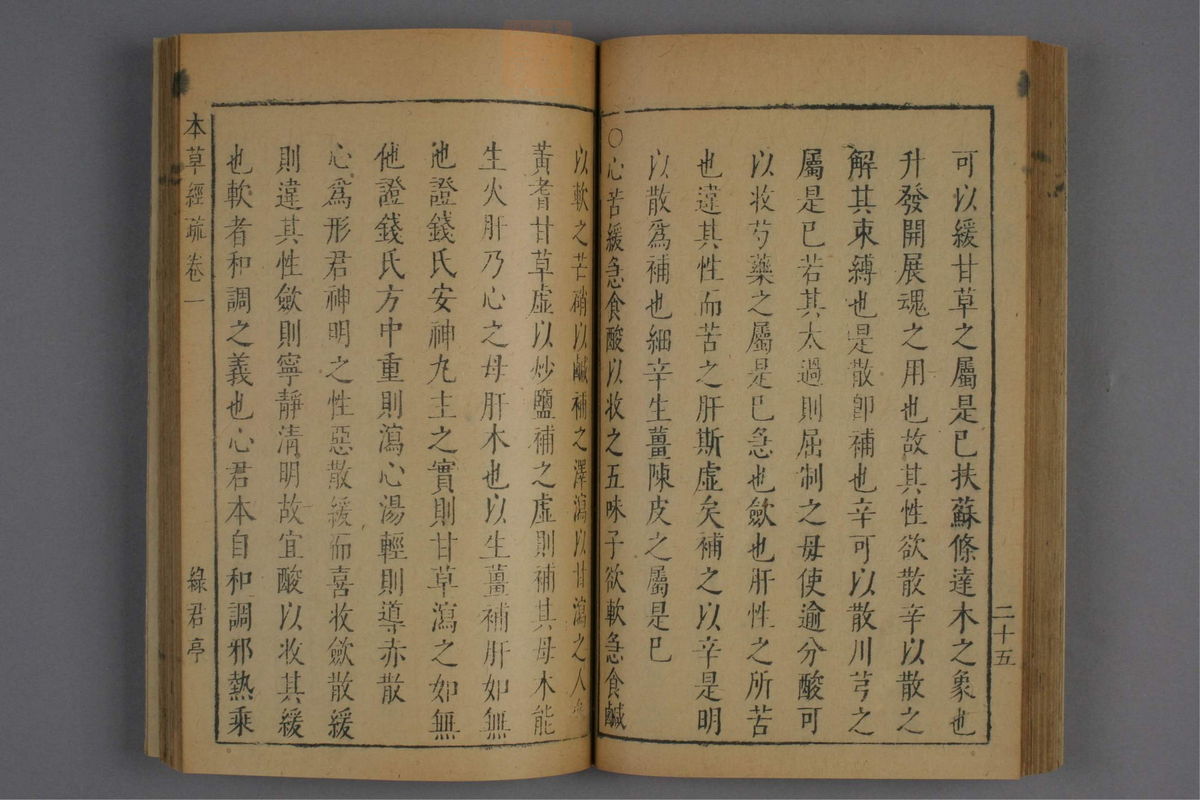 可以緩甘草之屬是已扶蘇條達木之象也
升發開展魂之用也故其性欲散辛以散之
解其束縛也是散卽補也辛可以散川芎之
屬是已若其太過則屈制之毋使逾分酸可
以收芍藥之屬是巳急也斂也肝性之所苦
也違其性而苦之肝斯虛矣補之以辛是明
以散爲補也細辛生薑陳皮之屬是巳
○心苦緩急食酸以收之五味子欲軟急食鹹
二十五
以軟之芒硝以鹹補之澤瀉以甘瀉之人
黃耆甘草虛以炒鹽補之虛則補其母木能
生火肝乃心之母肝木也以生薑補肝如無
他證錢氏安神丸主之實則甘草瀉之如無
他證錢氏方中重則瀉心湯輕則導赤散
心爲形君神明之性惡散緩而喜收斂散緩
則違其性斂則寧靜清明故宜酸以收其緩
也軟者和調之義也心君本自和調邪熱乘
本草經疏卷一
綠君亭